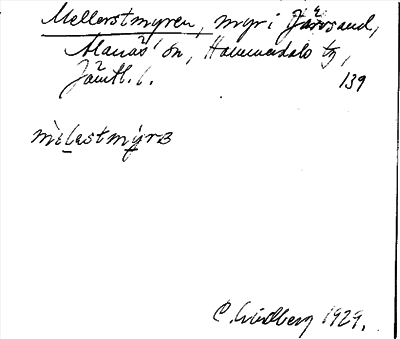 Mellerstmyren, myr i Järvsand,
Alanäs sn, Hammerdals tg,
Jämtl. l. 139
mìlestmýrʙ
C. Lindberg 1929.